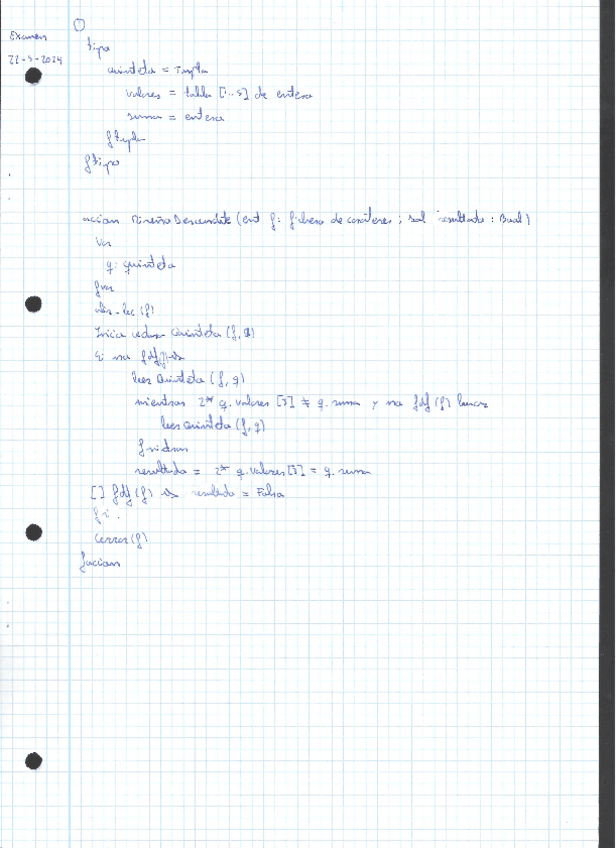 Examen
22-5-2024
①
tipo
quinteta = tupla
valores = tabla [1..5] de entero
suma = entero
ftupla
ftipo
accion DiseñoDescendente (ent f: fichero de caracteres ; sal resultado : Bool)
Var
q: quinteta
fvar
(f)
Quinteta (f, q)
Si no fdf(f) →
leer Quinteta (f, q)
mientras 2* q.valores [3] ≠ q.suma y no fdf (f) hacer
leer Quinteta (f, q)
fmientras
resultado = 2* q.valores [3] = q.suma
[] fdf (f) → resultado = Falso
fsi
cerrar (f)
faccion